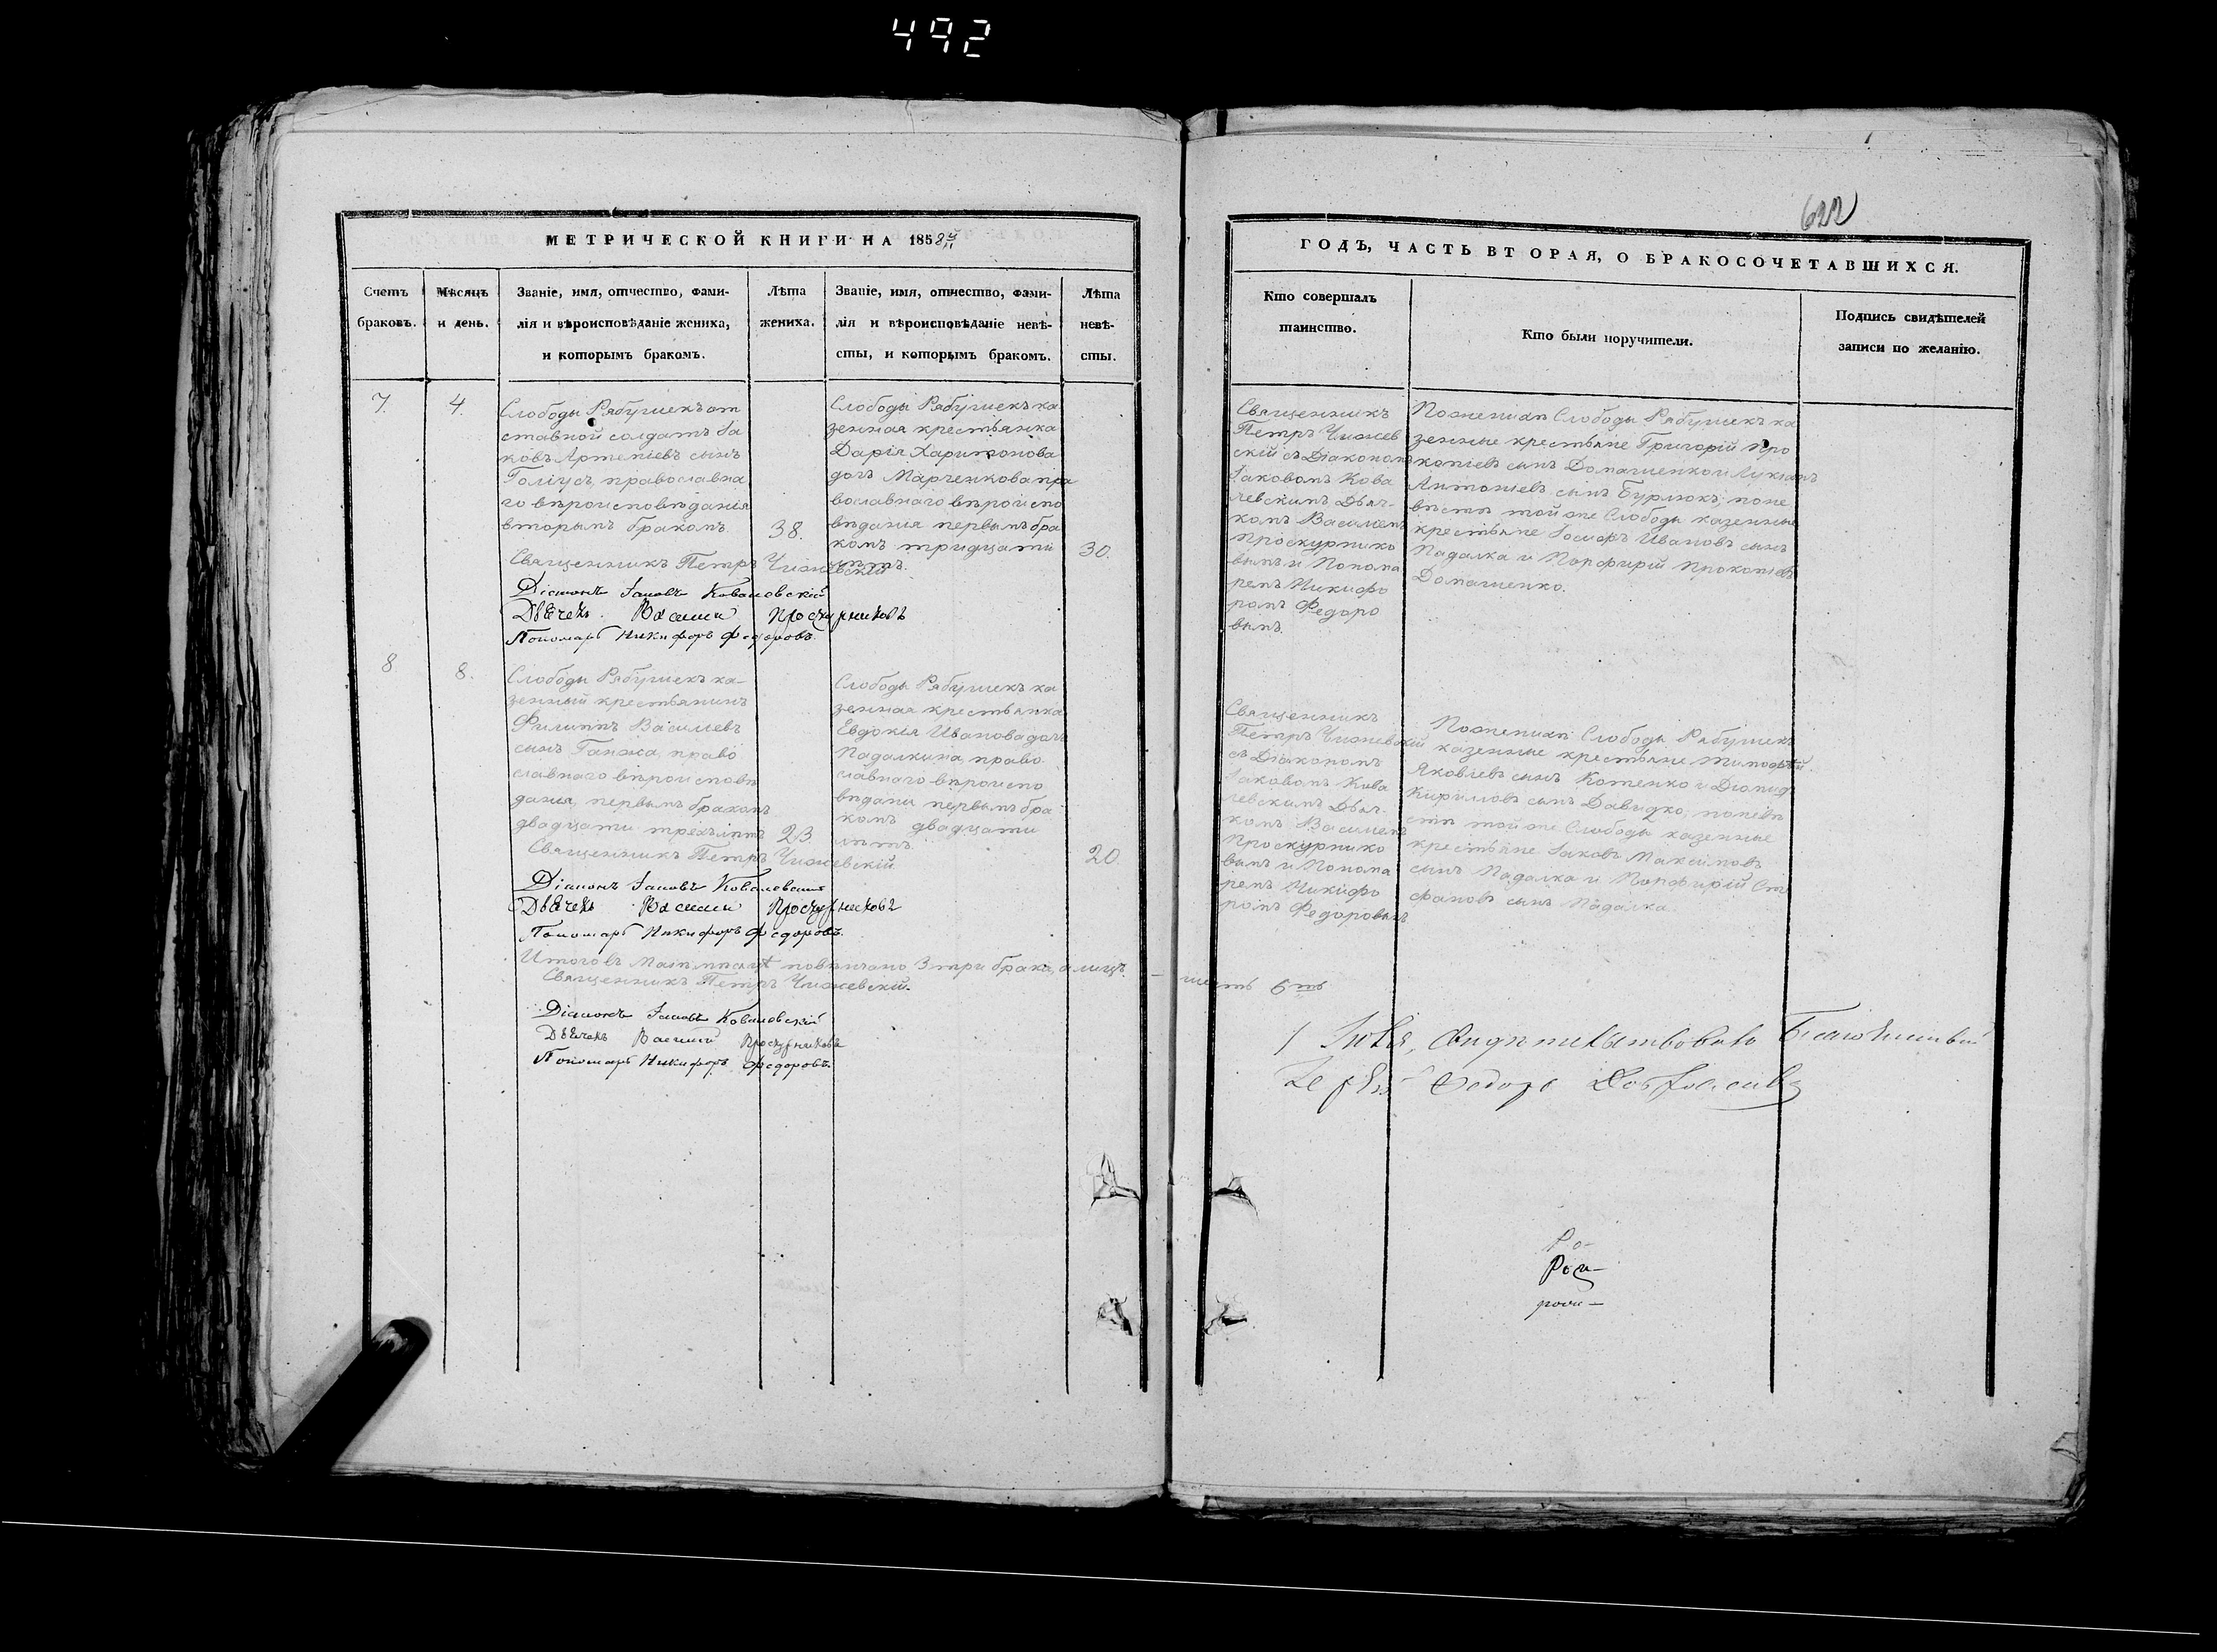 492
622
МЕТРИЧЕСКОЙ КНИГИ НА 1858й
ГОДЪ, ЧАСТЬ ВТОРАЯ, О БРАКОСОЧЕТАВШИХСЯ.
Счетъ
браковъ.
Мѣсяцъ
и день.
Званіе, имя, отчество, фами-
лія и вѣроисповѣданіе жениха,
и которымъ бракомъ.
Лѣта
жениха.
Званіе, имя, отчество, фами-
лія и вѣроисповѣданіе невѣ-
сты, и которымъ бракомъ.
Лѣта
невѣ-
сты.
Кто совершалъ
таинство.
Кто были поручители.
Подпись свидѣтелей
записи по желанію.
7.
4.
Слободы Рябушекъ от
ставной солдатъ Іа
ковъ Артеміевъ сынъ
православна
го вѣроисповѣданія
вторымъ бракомъ
38.
Слободы Рябушекъ ка
зенная крестьянка
Дарія Харитонова
дочь Марченкова пра
вославнаго вѣроиспо
вѣданія первымъ бра
комъ тридцати
лѣтъ.
30.
Священникъ
Петръ Чижев
скій съ Діакономъ
Іаковомъ Кова
левскимъ Дьяч-
комъ Василіемъ
Проскурнико
вымъ и Понома
ремъ Никифо
ромъ Федоро
вымъ.
По женихѣ Слободы Рябушекъ ка
зенные крестьяне Григорій Про
копіевъ сынъ Домашенко и Лукіанъ
Антоніевъ сынъ Бурлюкъ; по не
вѣстѣ той же Слободы казенные
крестьяне Іосифъ Ивановъ сынъ
Падалка и Порфирій Прокопіевъ
Домашенко.
Священникъ Петръ Чижевскій
Діаконъ Іаковъ Ковалевскій
Дьячекъ Василий Проскурниковъ
Пономарь Никифоръ Федоровъ.
8
8.
Слободы Рябушекъ ка-
зенный крестьянинъ
Филиппъ Васильевъ
сынъ Ганжа, право
славнаго вѣроисповѣ
данія, первымъ бракомъ
двадцати трехъ лѣтъ
23.
Слободы Рябушекъ ка
зенная крестьянка
Евдокія Иванова дочь
Падалкина, право
славнаго вѣроиспо
вѣдани первымъ бра
комъ двадцати
лѣтъ.
20.
Священникъ
Петръ Чижевскій
съ Діакономъ
Іаковомъ Кова
левскимъ Дьяч-
комъ Василіемъ
Проскурнико
вымъ и Понома
ремъ Никифо
ромъ Федоровымъ
По женихѣ Слободы Рябушекъ
казенные крестьяне Тимофей
Яковлевъ сынъ Котенко и
Кирилловъ сынъ Давидко; по невѣ
стѣ той же Слободы казенные
крестьяне Іаковъ Максимовъ
сынъ Падалка и Порфирій Сте
фановъ сынъ Падалка.
Священникъ Петръ Чижевскій
Діаконъ Іаковъ Ковалевскій
Дьячекъ Василий Проскурниковъ
Пономарь Никифоръ Федоровъ.
Итого въ повѣнчано 3 три брака, а лицъ - шесть 6ть
Священникъ Петръ Чижевскій.
Діаконъ Іаковъ Ковалевскій
Дьячекъ Василий Проскурниковъ
Пономарь Никифоръ Федоровъ.
Благочинный
Іерей Федоръ